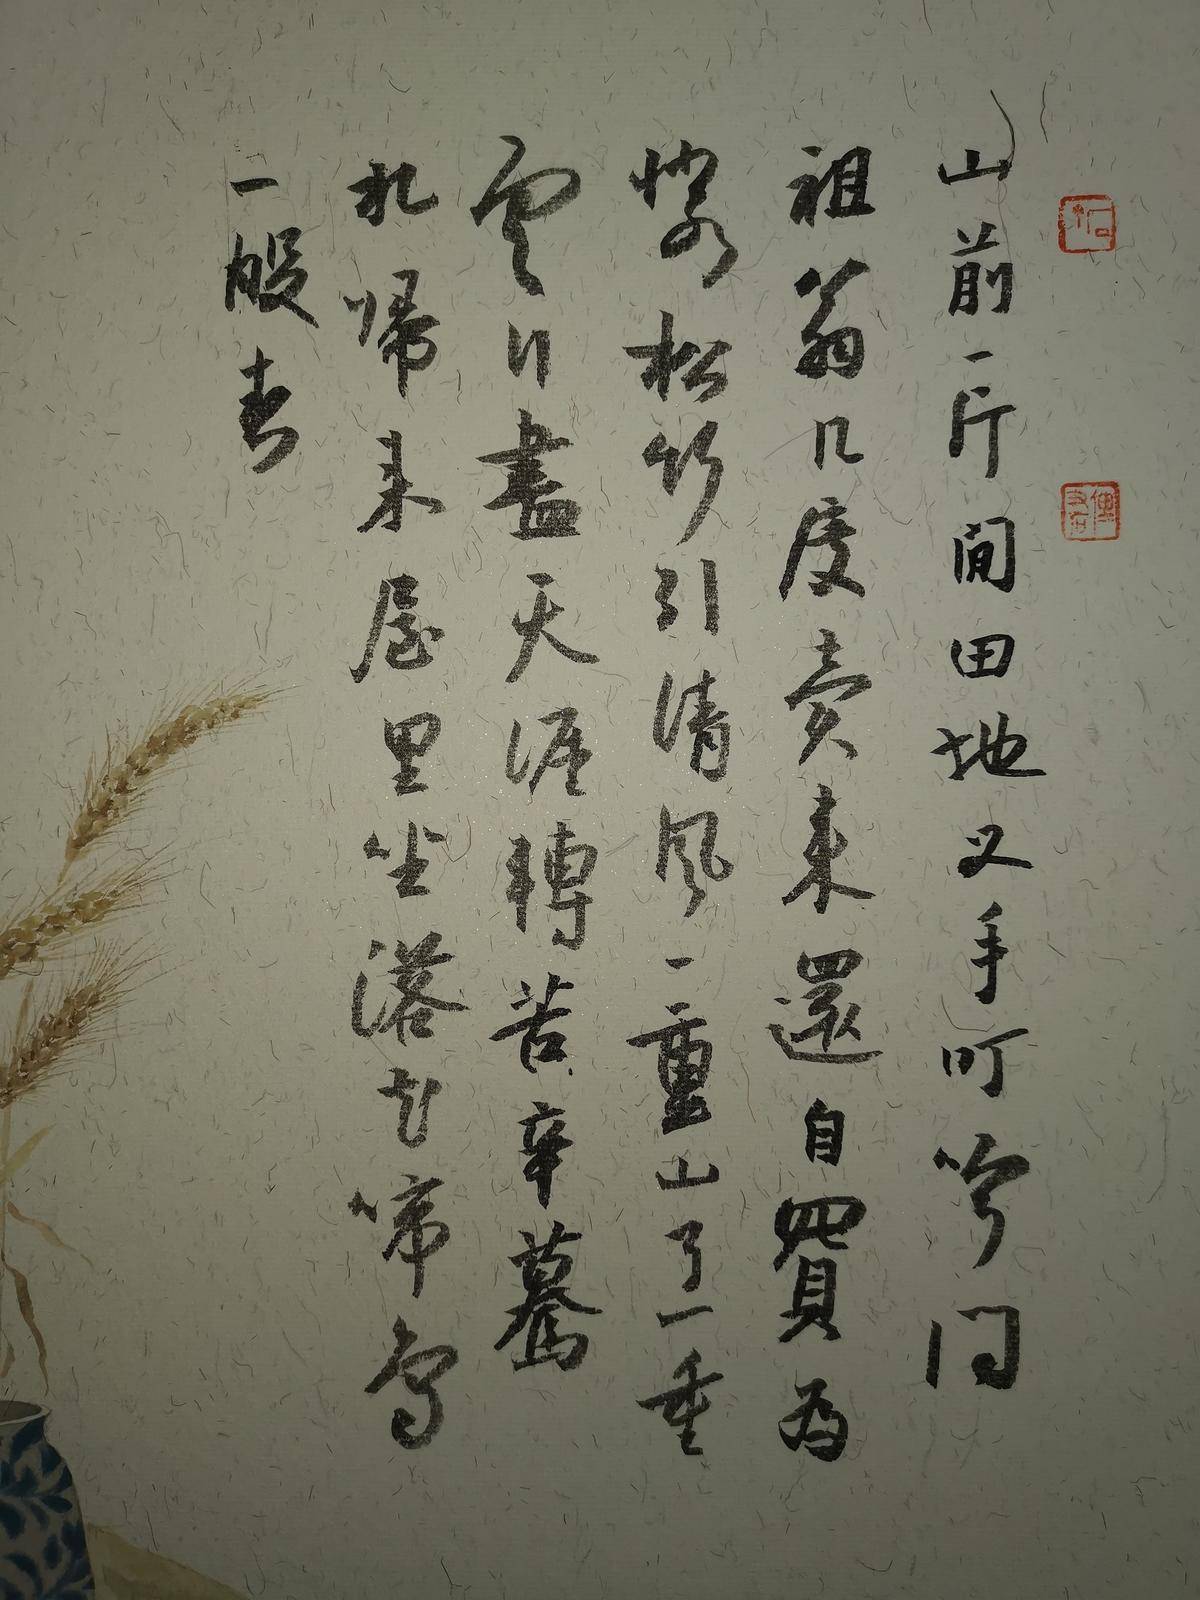 山前一片閒田地叉手叮嚀問
祖翁几度賣来還自買為
憐松竹引清風一重山了一重
雲行盡天涯轉苦辛驀
札歸来屋里坐落花啼鳥
一般春